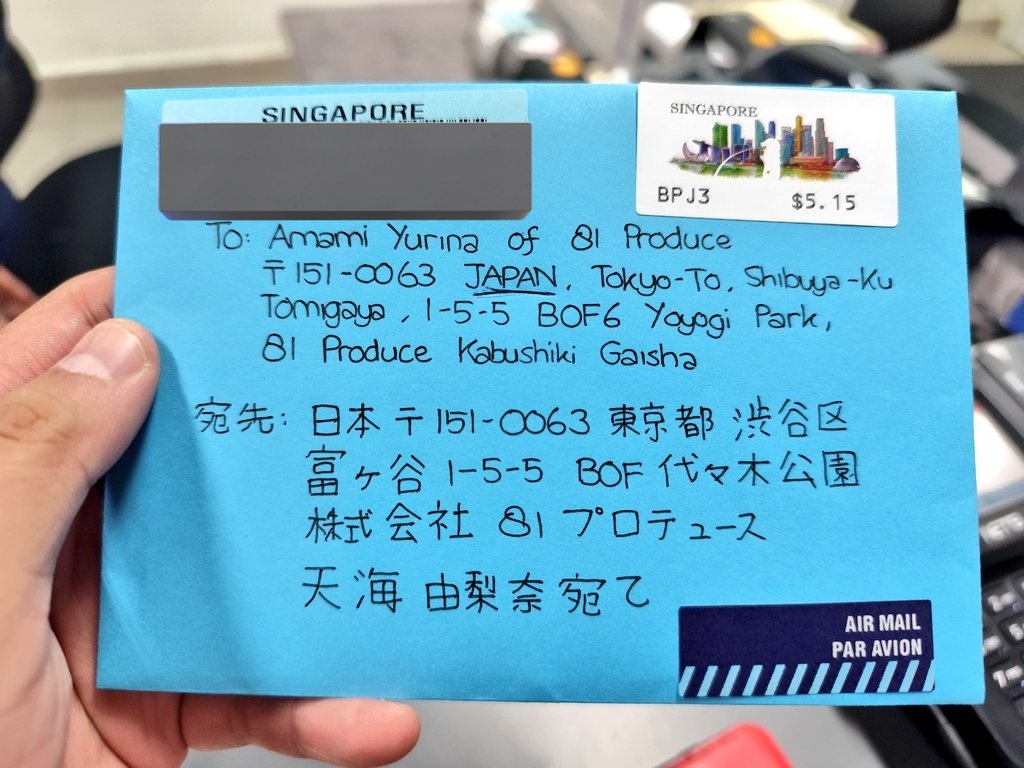 SINGAPORE
SINGAPORE
BPJ3 $5.15
To: Amami Yurina of 81 Produce
〒151-0063 JAPAN, Tokyo-To, Shibuya-Ku
Tomigaya, 1-5-5 BOF6 Yoyogi Park,
81 Produce Kabushiki Gaisha
宛先: 日本 〒151-0063 東京都 渋谷区
富ヶ谷 1-5-5 BOF 代々木公園
株式会社 81 プロデュース
天海 由梨奈 宛て
AIR MAIL
PAR AVION